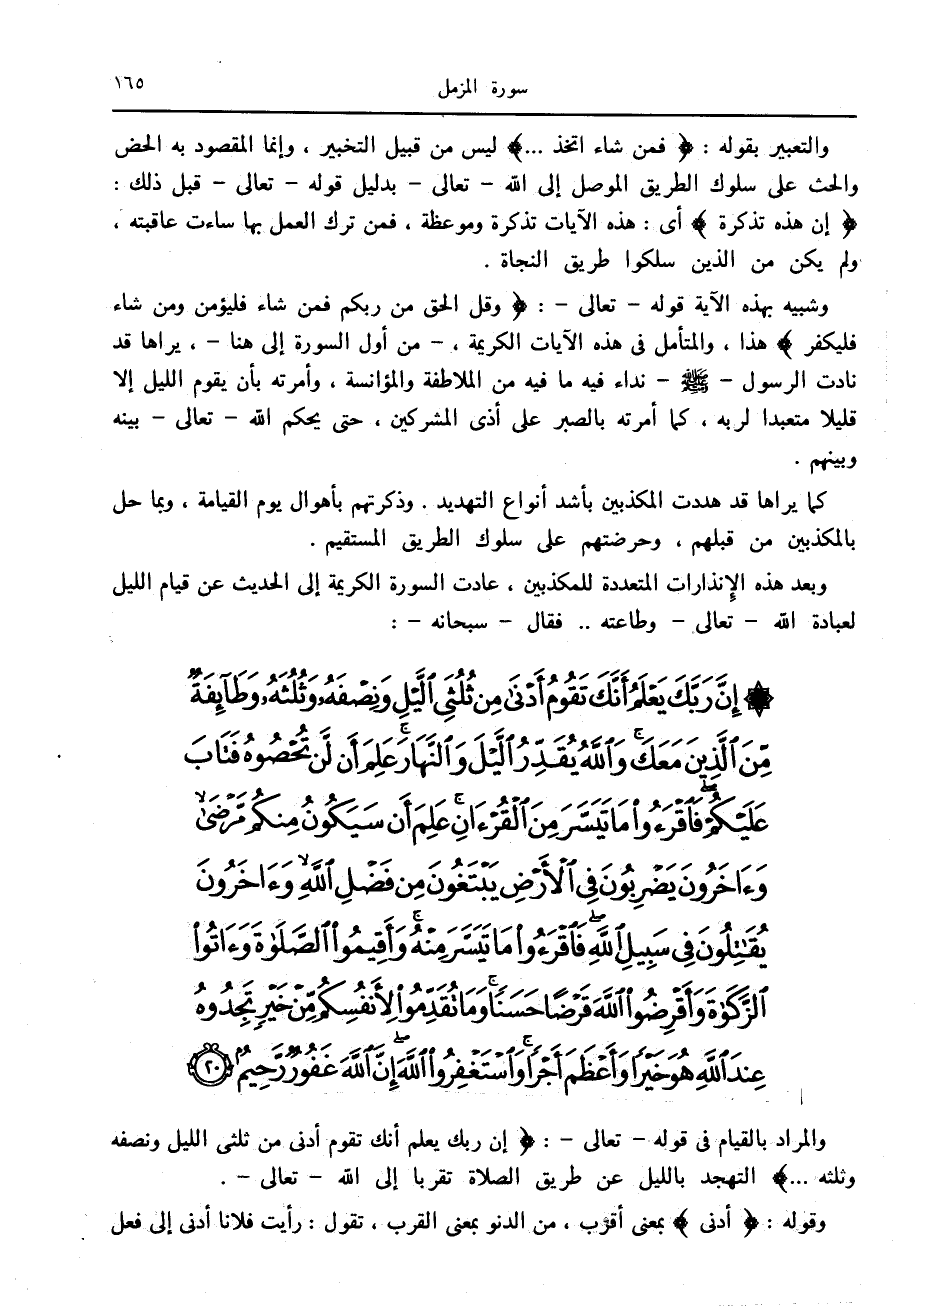 سورة المزمل ١٦٥
والتعبير بقوله : ﴿ فمن شاء اتخذ ...﴾ ليس من قبيل التخيير ، وإنما المقصود به الحض
والحث على سلوك الطريق الموصل إلى الله - تعالى - بدليل قوله - تعالى - قبل ذلك :
﴿ إن هذه تذكرة ﴾ أى : هذه الآيات تذكرة وموعظة ، فمن ترك العمل بها ساءت عاقبته ،
ولم يكن من الذين سلكوا طريق النجاة .
وشبيه بهذه الآية قوله - تعالى - : ﴿ وقل الحق من ربكم فمن شاء فليؤمن ومن شاء
فليكفر ﴾ هذا ، والمتأمل فى هذه الآيات الكريمة ، - من أول السورة إلى هنا - ، يراها قد
نادت الرسول - ﷺ - نداء فيه ما فيه من الملاطفة والمؤانسة ، وأمرته بأن يقوم الليل إلا
قليلا متعبدا لربه ، كما أمرته بالصبر على أذى المشركين ، حتى يحكم الله - تعالى - بينه
وبينهم .
كما يراها قد هددت المكذبين بأشد أنواع التهديد . وذكرتهم بأهوال يوم القيامة ، وبما حل
بالمكذبين من قبلهم ، وحرضتهم على سلوك الطريق المستقيم .
وبعد هذه الإنذارات المتعددة للمكذبين ، عادت السورة الكريمة إلى الحديث عن قيام الليل
لعبادة الله - تعالى - وطاعته .. فقال - سبحانه - :
۞ إِنَّ رَبَّكَ يَعْلَمُ أَنَّكَ تَقُومُ أَدْنَىٰ مِن ثُلُثَىِ ٱلَّيْلِ وَنِصْفَهُۥ وَثُلُثَهُۥ وَطَآئِفَةٌ
مِّنَ ٱلَّذِينَ مَعَكَ ۚ وَٱللَّهُ يُقَدِّرُ ٱلَّيْلَ وَٱلنَّهَارَ ۚ عَلِمَ أَن لَّن تُحْصُوهُ فَتَابَ
عَلَيْكُمْ ۖ فَٱقْرَءُوا۟ مَا تَيَسَّرَ مِنَ ٱلْقُرْءَانِ ۚ عَلِمَ أَن سَيَكُونُ مِنكُم مَّرْضَىٰ ۙ
وَءَاخَرُونَ يَضْرِبُونَ فِى ٱلْأَرْضِ يَبْتَغُونَ مِن فَضْلِ ٱللَّهِ ۙ وَءَاخَرُونَ
يُقَٰتِلُونَ فِى سَبِيلِ ٱللَّهِ ۖ فَٱقْرَءُوا۟ مَا تَيَسَّرَ مِنْهُ ۚ وَأَقِيمُوا۟ ٱلصَّلَوٰةَ وَءَاتُوا۟
ٱلزَّكَوٰةَ وَأَقْرِضُوا۟ ٱللَّهَ قَرْضًا حَسَنًا ۚ وَمَا تُقَدِّمُوا۟ لِأَنفُسِكُم مِّنْ خَيْرٍ تَجِدُوهُ
عِندَ ٱللَّهِ هُوَ خَيْرًا وَأَعْظَمَ أَجْرًا ۚ وَٱسْتَغْفِرُوا۟ ٱللَّهَ ۖ إِنَّ ٱللَّهَ غَفُورٌ رَّحِيمٌۢ ٢٠
والمراد بالقيام فى قوله - تعالى - : ﴿ إن ربك يعلم أنك تقوم أدنى من ثلثى الليل ونصفه
وثلثه ...﴾ التهجد بالليل عن طريق الصلاة تقربا إلى الله - تعالى - .
وقوله : ﴿ أدنى ﴾ بمعنى أقرب ، من الدنو بمعنى القرب ، تقول : رأيت فلانا أدنى إلى فعل